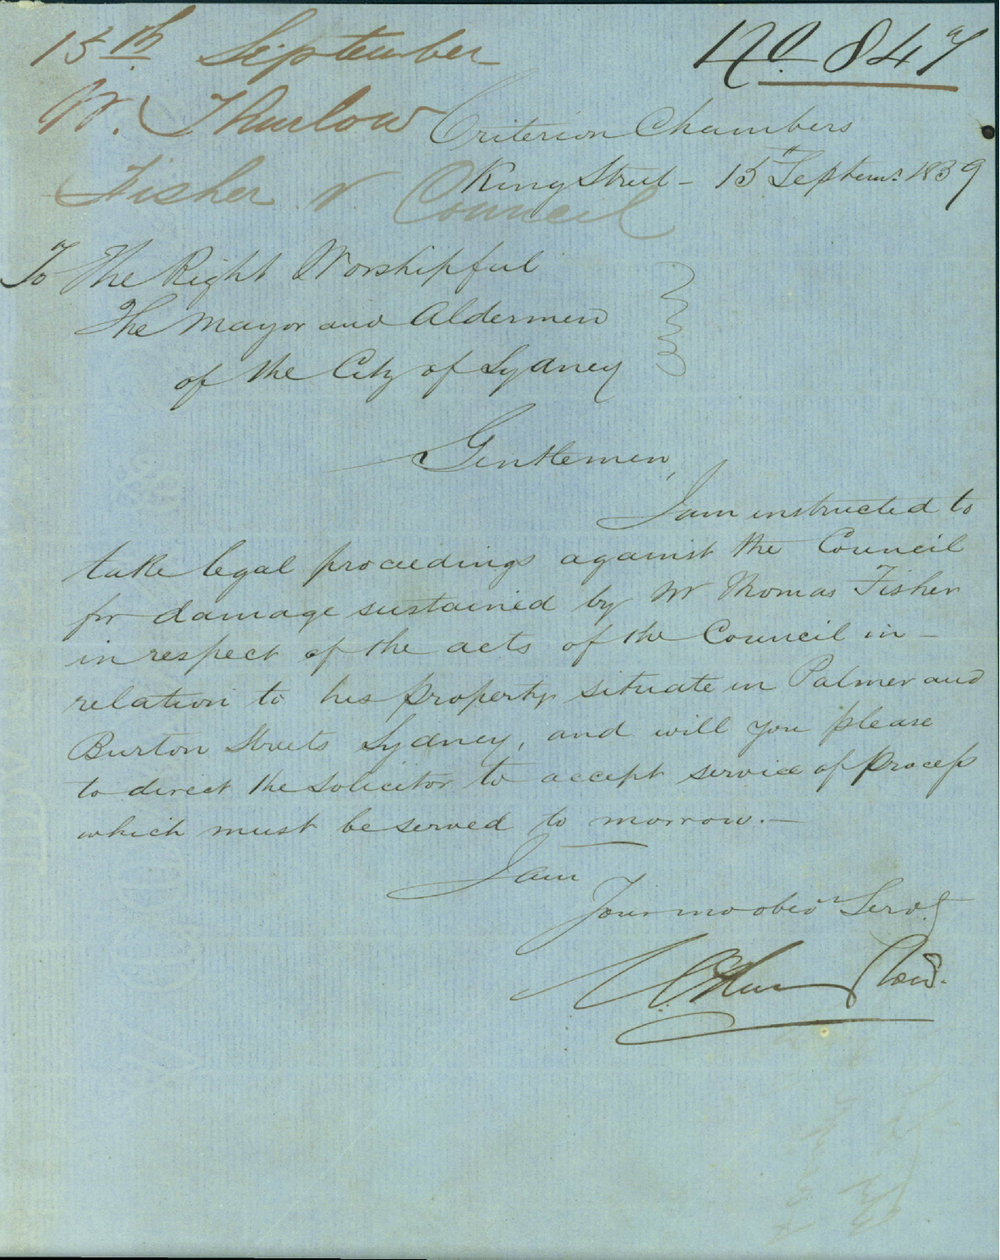 15th September
No 847
W. Thurlow
Criterion Chambers
Fisher v Council
King Street – 15th Septemr. 1859
To The Right Worshipful
The Mayor and Aldermen
of the City of Sydney
Gentlemen,
I am instructed to
take legal proceedings against the Council
for damage sustained by Mr Thomas Fisher
in respect of the acts of the Council in –
relation to his property situate in Palmer and
Burton Streets Sydney, and will you please
to direct the Solicitor to accept service of process
which must be served to morrow. –
I am
Your mo obed Servt